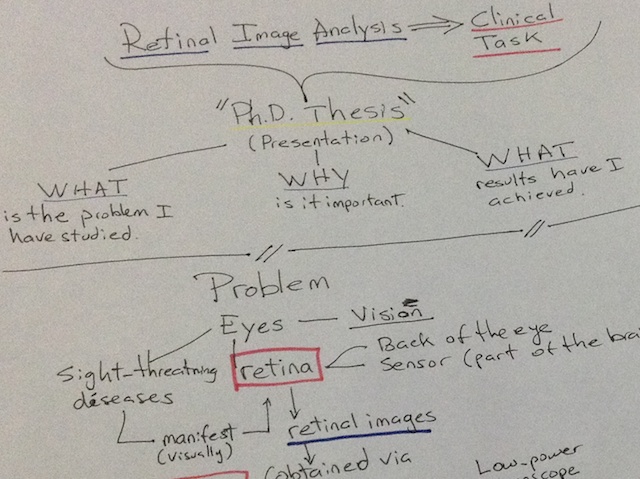 Retinal Image Analysis ⟹ Clinical
Task
"Ph.D. Thesis"
(Presentation)
WHAT
is the problem I
have studied.
WHY
is it important.
WHAT
results have I
achieved.
Problem
Eyes — Vision
Sight-threatning
déseases
retina
Back of the eye
Sensor (part of the brai
manifest
(visually)
retinal images
(obtained via
Low-power
scope